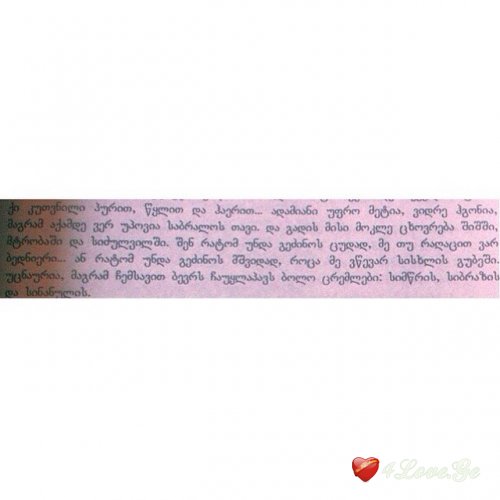 ქი კუთვნილი პურით, წყლით და ჰაერით... ადამიანი უფრო მეტია, ვიდრე ჰგონია,
მაგრამ აქამდე ვერ უპოვია საბრალოს თავი. და გადის მისი მოკლე ცხოვრება შიშში,
მტრობაში და სიძულვილში. შენ რატომ უნდა გეძინოს ცუდად, მე თუ რაღაცით ვარ
ბედნიერი... ან რატომ უნდა გეძინოს მშვიდად, როცა მე ვწევარ სისხლის გუბეში.
უცნაურია, მაგრამ ჩემსავით ბევრს ჩაუყლაპავს ბოლო ცრემლები: სიმწრის, სიბრაზის
და სინანულის.
4Love.Ge